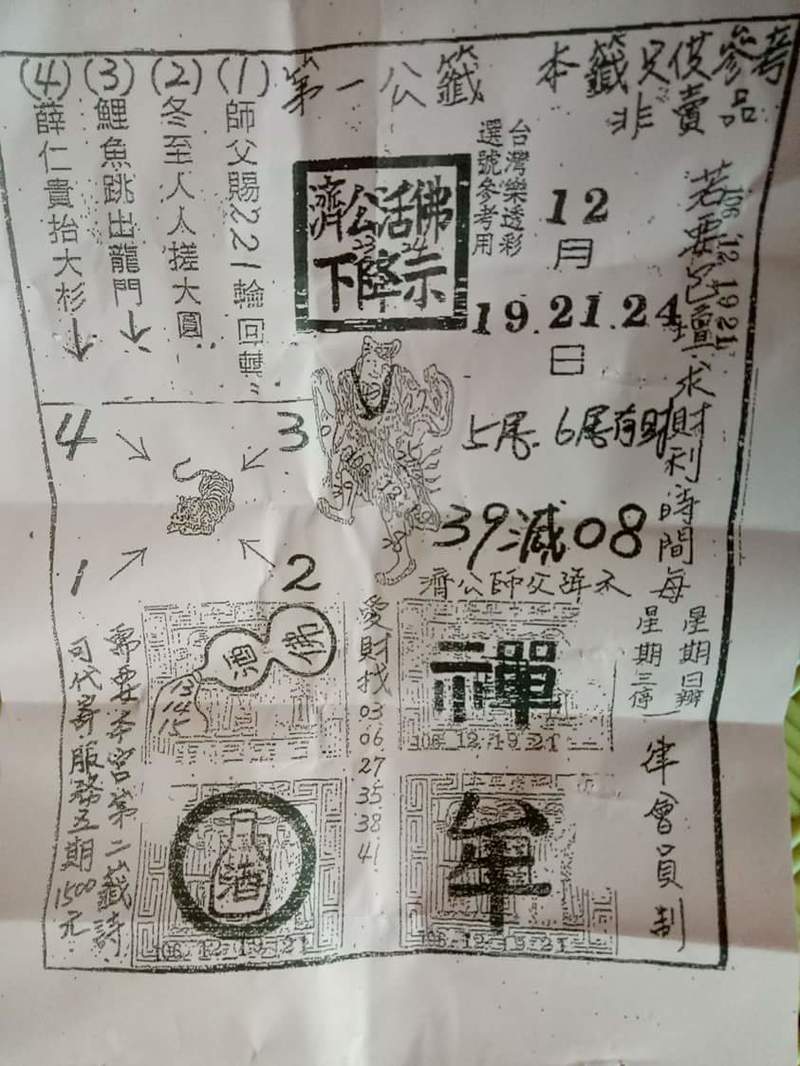 本籤只供參考
非賣品
第一公籤
(1)師父賜221輪回轉
(2)冬至人人搓大圓
(3)鯉魚跳出龍門
(4)薛仁貴抬大杉
台灣樂透彩
選號參考用
濟公活佛
下降示
12
月
19.21.24
日
5尾.6尾有財
39減08
濟公師父降示
4
3
1
2
若要問壇求財利時間每
星期日辦
星期三停
律會員制
106 12 19 21
愛財找
03
06
27
35
38
41
13
14
15
禪
106.12.19.21
酒
106.12.19.21
牟
106.12.19.21
需要本宮第二籤詩
可代寄服務五期1500元